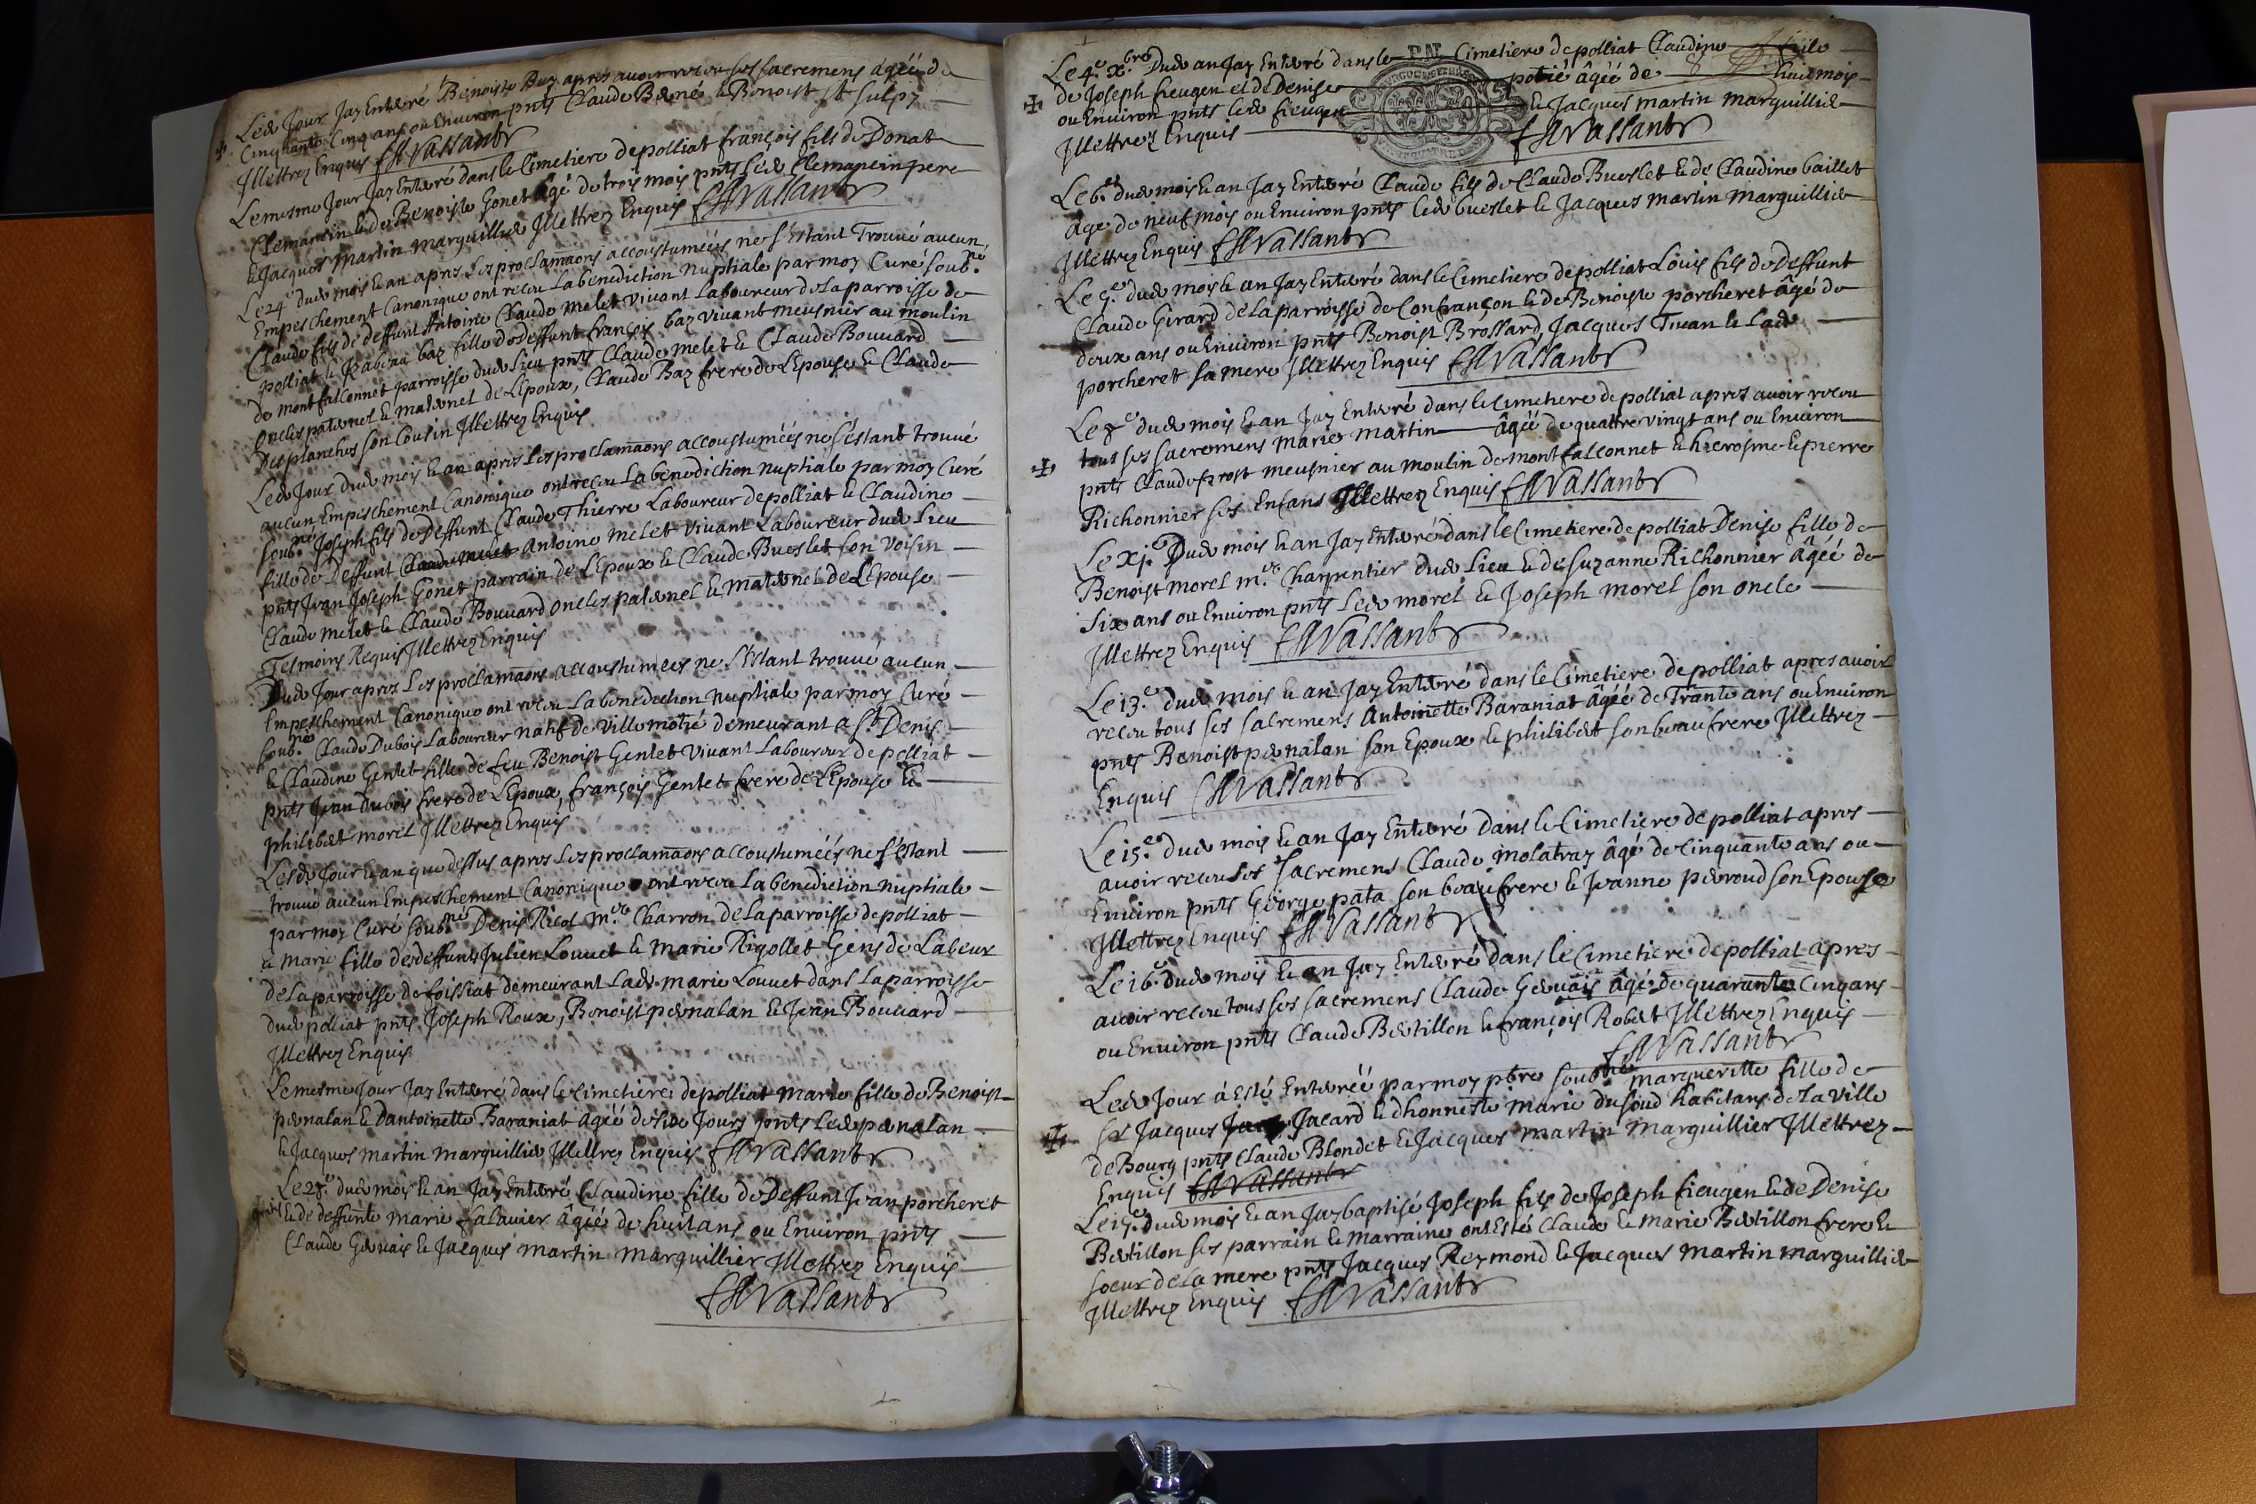 Led Jour Jay Enterré Benoiste Buz apres avoir receu ses sacremens âgéé de
Cinquante Cinq ans ou Environ pnts Claude Berné & Benoist St Sulpy
Illettrez Enquis Vassant
Le mesme Jour Jay Enterré dans le Cimetiere de polliat françois fils de Donat
Clemancin & de Benoiste Gonet âgé de trois mois pnts led Clemancin pere
& Jacques Martin Marguillier Illettrez Enquis Vassant
Le 24e dud mois & an apres les proclamaons accoustuméés ne s'estant Trouvé aucun
Empeschement Canonique ont receu La benediction Nuptiale par moy Curé soubné
Claude fils de deffunt Antoine Claude Melet vivant Laboureur de La parroisse de
polliat & pabeau baz fille de deffunt françois baz vivant meusnier au moulin
de montfalconnet parroisse dud Lieu pnts Claude Melet & Claude Bouvard
oncles paternel & maternel de L'Epoux, Claude Baz frere de L'Epouse & Claude
Desplanches son Cousin Illettrez Enquis
Led Jour dud mois & an apres Les proclamaons accoustuméés ne s'éstant trouvé
aucun Empeschement Canonique ont receu La benediction nuptiale par moy Curé
soubné Joseph fils de deffunt Claude Thierre Laboureur de polliat & Claudine
fille de deffunt Antoine Melet vivant Laboureur dud Lieu
pnts Jean Joseph Gonet parrain de L'Epoux & Claude Bueslet son voisin
Claude Melet & Claude Bouvard oncles paternel & maternel de L'Epouse
Tesmoins Requis Illettrez Enquis
Dud Jour apres Les proclamaons accoustumees ne s'estant trouvé aucun
Empeschement Canonique ont receu La benediction nuptiale par moy Curé
soubné Claude Dubois Laboureur natif de Villemotié demeurant a St Denis
& Claudine Gentet fille de feu Benoist Gentet vivant Laboureur de polliat
pnts Jean Dubois frere de L'Epoux, françois Gentet frere de L'Epouse &
philibert morel Illettrez Enquis
Led Jour & an que dessus apres Les proclamaons accoustuméés ne s'éstant
trouvé aucun Empeschement Canonique ont receu La benediction nuptiale
par moy Curé soubné Denis Ricol mre Charron de La parroisse de polliat
& Marie fille de deffunts Julien Louvet & Marie Rigollet Gens de Labeur
de La parroisse de foissiat demeurant Lad marie Louvet dans La parroisse
dud polliat pnts Joseph Roux, Benoist pernalan & Jean Bouvard
Illettrez Enquis
Le mesme Jour Jay Enterré dans le Cimetiere de polliat marie fille de Benoist
pernalan & d'antoinette Baraniat âgéé de six Jours pnts Led pernalan
& Jacques martin marguillier Illettrez Enquis Vassant
Le 28e dud mois & an Jay Enterré Claudine fille de deffunt Jean porcheret
& de deffunte marie falavier âgéé de huit ans ou Environ pnts
Claude Gervais & Jacques Martin Marguillier Illettrez Enquis
Vassant
Le 4e xbre Dud an Jay Enterré dans le Cimetiere de polliat Claudine fille
de Joseph fieugen et de Denise potié âgéé de huit mois
ou Environ pnts led fieugen & Jacques Martin Marguillier
Illettrez Enquis Vassant
Le 6e dud mois & an Jay Enterré Claude fils de Claude Bueslet & de Claudine baillet
âgé de neuf mois ou Environ pnts led bueslet & Jacques Martin Marguillier
Illettrez Enquis Vassant
Le 7e dud mois & an Jay Enterré dans le Cimetiere de polliat Louis fils de Deffunt
Claude Girard de La parroisse de Confrançon & de Benoiste porcheret âgé de
deux ans ou Environ pnts Benoist Brossard, Jacques Tuan & Lad
porcheret sa mere Illettrez Enquis Vassant
Le 8e dud mois & an Jay Enterré dans le Cimetiere de polliat apres avoir receu
tous ses sacremens Marie Martin âgéé de quattre vingt ans ou Environ
pnts Claude frost meusnier au moulin de montfalconnet & hierosme & pierre
Richonnier ses Enfans Illettrez Enquis Vassant
Le xje Dud mois & an Jay Enterré dans le Cimetiere de polliat Denise fille de
Benoist morel mre Charpentier dud Lieu & de Suzanne Richonnier âgéé de
six ans ou Environ pnts Led morel & Joseph morel son oncle
Illettrez Enquis Vassant
Le 13e dud mois & an Jay Enterré dans le Cimetiere de polliat apres avoir
receu tous ses sacremens Antoinette Baraniat âgéé de Trante ans ou Environ
pnts Benoist pernalan son Epoux & philibert son beau frere Illettrez
Enquis Vassant
Le 15e dud mois & an Jay Enterré dans le Cimetiere de polliat apres
avoir receu ses sacremens Claude Molatraz âgé de Cinquante ans ou
Environ pnts George pata son beau frere & Jeanne peuroud son Epouse
Illettrez Enquis Vassant
Le 16e dud mois & an Jay Enterré dans le Cimetiere de polliat apres
avoir receu tous ses sacremens Claude Gervais âgé de quarante Cinq ans
ou Environ pnts Claude Bertillon & françois Robert Illettrez Enquis
Vassant
Led Jour à Esté Enterréé par moy pbre soubné margueritte fille de
sr Jacques Jacard & d'honneste Marie dufoud habitans de La Ville
de Bourg pnts Claude Blondet & Jacques Martin Marguillier Illettrez
Enquis Vassant
Le 17e dud mois & an Jay baptisé Joseph fils de Joseph fieugen & de Denise
Bertillon ses parrain & Marraine ont Esté Claude & Marie Bertillon frere &
soeur de La mere pnts Jacques Reymond & Jacques Martin Marguillier
Illettrez Enquis Vassant